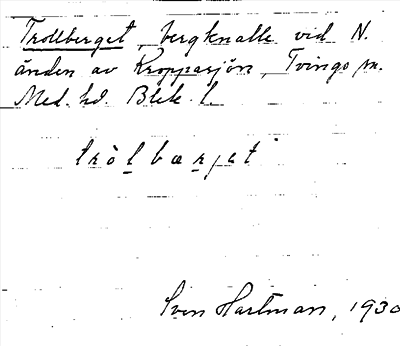 Trollberget, bergknalle vid N.
änden av Kroppasjön, Tvingo sn.
Med. hd. Blek. l.
tròlbærjat
Sven Hartman, 1930